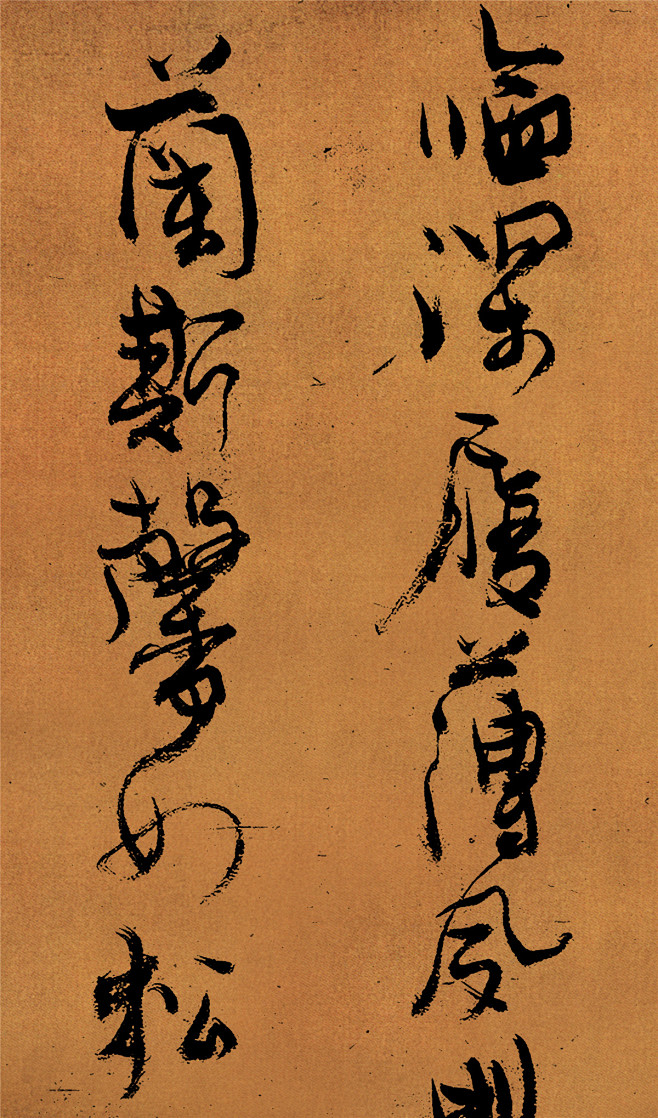 臨深履薄夙
蘭斯馨如松